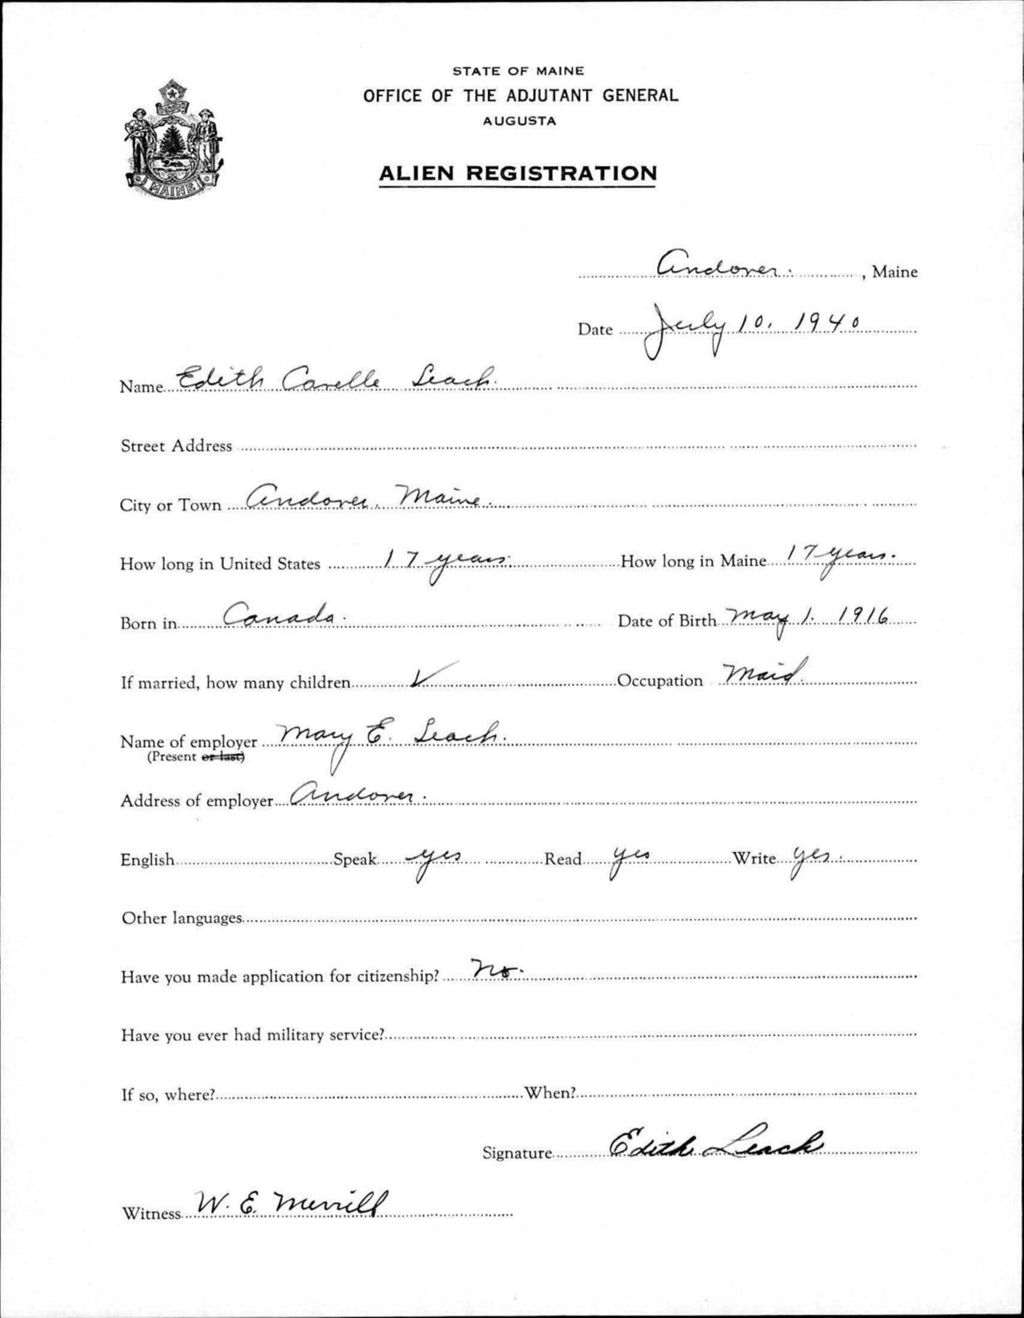 STATE OF MAINE
OFFICE OF THE ADJUTANT GENERAL
AUGUSTA
ALIEN REGISTRATION
MAINE
Andover. , Maine
Date July 10. 1940
Name Edith Carelle Leach.
Street Address
City or Town Andover, Maine.
How long in United States 17 years. How long in Maine 17 years.
Born in Canada. Date of Birth May 1. 1916
If married, how many children ✓ Occupation Maid.
Name of employer Mary E. Leach.
(Present or last)
Address of employer Andover.
English Speak yes Read yes Write yes.
Other languages
Have you made application for citizenship? No.
Have you ever had military service?
If so, where? When?
Signature Edith Leach
Witness W. E. Merrill